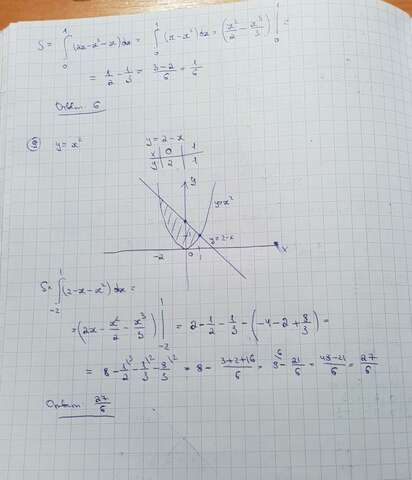 S = ∫₀¹ (2x-x²-x)dx = ∫₀¹ (x-x²)dx = (x²/2 - x³/3) |₀¹ =
= 1/2 - 1/3 = (3-2)/6 = 1/6
Ответ: 6
y = x²
y = 2 - x
x 0 1
y 2 1
y
y=x²
y=2-x
-2 0 1 x
S = ∫₋₂¹ (2-x-x²)dx =
= (2x - x²/2 - x³/3) |₋₂¹ = 2 - 1/2 - 1/3 - (-4-2+8/3) =
= 8 - 1/2 - 1/3 - 8/3 = 8 - (3+2+16)/6 = 8 - 21/6 = (48-21)/6 = 27/6
Ответ: 27/6